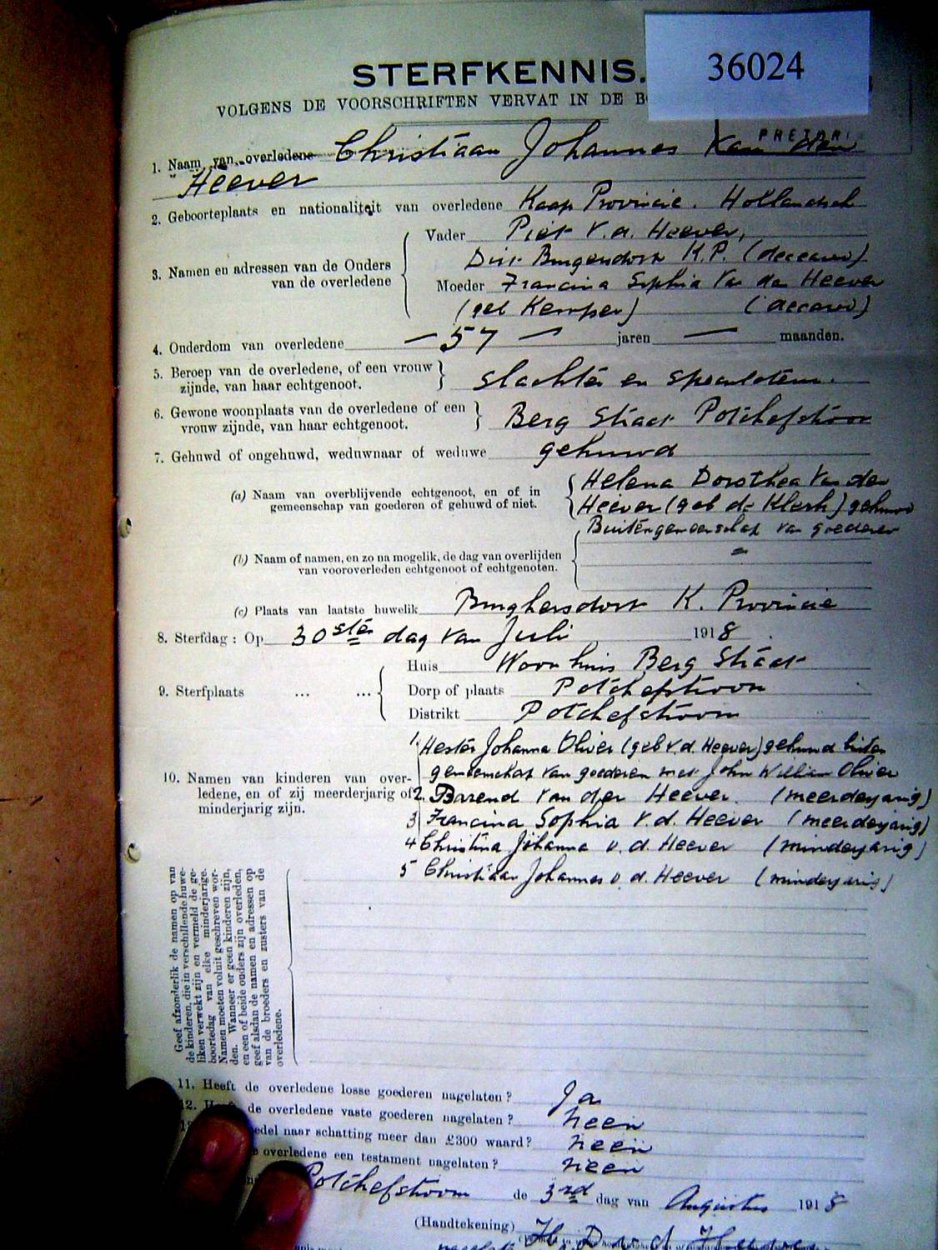 36024
STERFKENNIS.
VOLGENS DE VOORSCHRIFTEN VERVAT IN DE
PRETORI
1. Naam van overledene Christiaan Johannes Van den
Heever
2. Geboorteplaats en nationaliteit van overledene Kaap Provincie. Hollandsch
3. Namen en adressen van de Ouders van de overledene
Vader Piet V. d. Heever,
Dist Burgersdorp K.P. (deceased)
Moeder Francina Sophia Van den Heever
(geb Kemper) (deceased)
4. Onderdom van overledene — 57 — jaren — maanden.
5. Beroep van de overledene, of een vrouw
zijnde, van haar echtgenoot. Slachter en
6. Gewone woonplaats van de overledene of een
vrouw zijnde, van haar echtgenoot. Berg Straat Potchefstroom
7. Gehuwd of ongehuwd, weduwnaar of weduwe gehuwd
(a) Naam van overblijvende echtgenoot, en of in
gemeenschap van goederen of gehuwd of niet.
Helena Dorothea Van der
Heever (geb de Klerk) gehuwd
Buitengemeenschap van goederen
(b) Naam of namen, en zo na mogelik, de dag van overlijden
van vooroverleden echtgenoot of echtgenoten.
(c) Plaats van laatste huwelik Burghersdorp K. Provincie
8. Sterfdag : Op 30ste dag van Juli 1918.
9. Sterfplaats ... ...
Huis Woonhuis Berg Straat
Dorp of plaats Potchefstroom
Distrikt Potchefstroom
10. Namen van kinderen van over-
ledene, en of zij meerderjarig of
minderjarig zijn.
1. Hester Johanna Olivier (geb v.d. Heever) gehuwd buiten
gemeenschap van goederen met John William Olivier
2. Barend Van der Heever. (meerderjarig)
3 Francina Sophia V. d. Heever (meerderjarig)
4 Christina Johanna v. d. Heever (minderjarig)
5 Christiaan Johannes v. d. Heever (minderjarig)
Geef afzonderlik de namen op van
de kinderen, die in verschillende huwe-
liken verwekt zijn en vermeld de ge-
boortedag van elke minderjarige.
Namen moeten voluit geschreven wor-
den. Wanneer er geen kinderen zijn,
en een of beide ouders zijn overleden,
geef alsdan de namen en adressen op
van de broeders en zusters van de
overledene.
11. Heeft de overledene losse goederen nagelaten ? Ja
12. de overledene vaste goederen nagelaten ? neen
edel naar schatting meer dan £300 waard ? neen
e overledene een testament nagelaten ? neen
Potchefstroom de 3rd dag van Augustus 1918
(Handtekening) H. D. v d Heever